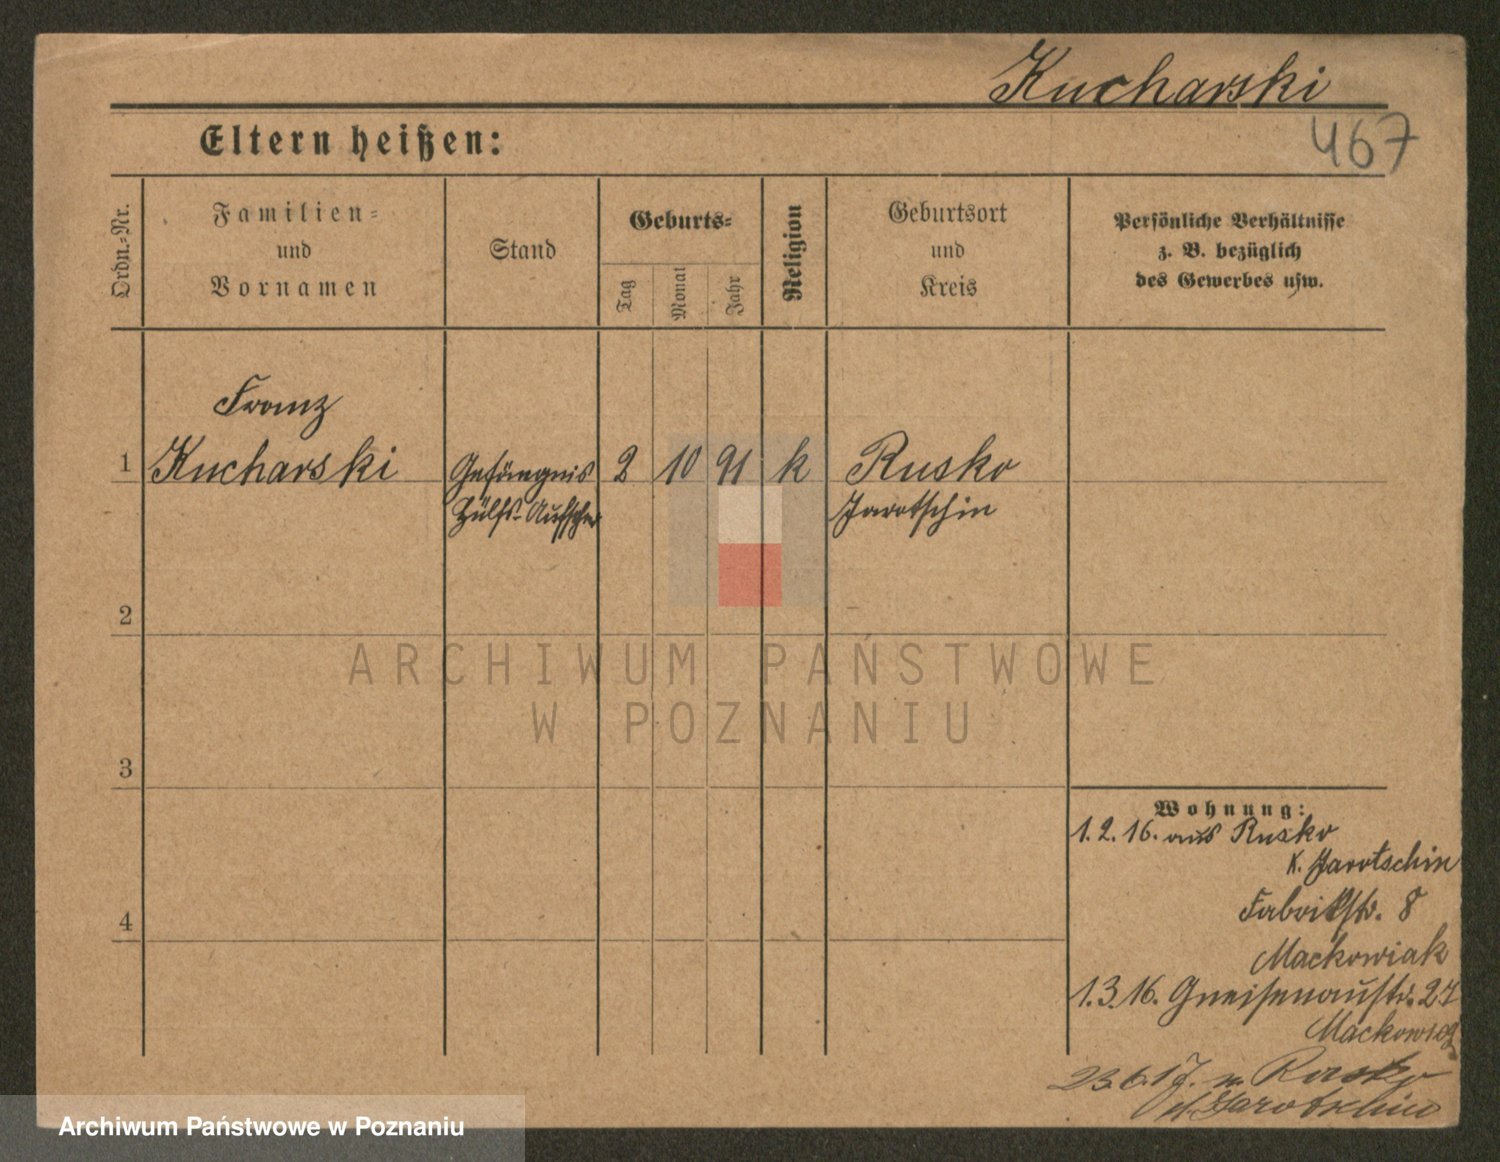 Kucharski
467
Eltern heißen:
Ordn.-Nr.
Familien-
und
Vornamen
Stand
Geburts-
Tag
Monat
Jahr
Religion
Geburtsort
und
Kreis
Persönliche Verhältnisse
z. B. bezüglich
des Gewerbes usw.
Franz
1 Kucharski Gefängnis 2 10 91 k Rusko
Hülfs-Aufseher Jarotschin
2
ARCHIWUM PAŃSTWOWE
W POZNANIU
3
Wohnung:
1.2.16. aus Rusko
K. Jarotschin
4
Fabrikstr. 8
Mackowiak
1.3.16. Gneisenaustr. 27
23.6.17. n. Rusko
Jarotschin
Archiwum Państwowe w Poznaniu